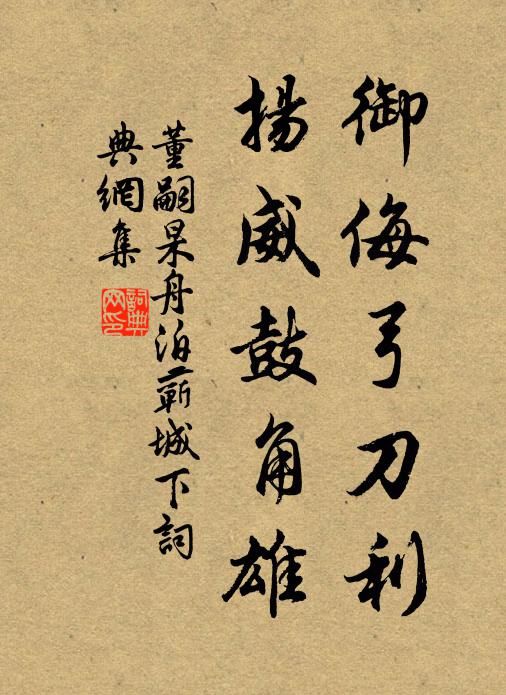 御侮弓刀利
揚威鼓角雄
董嗣杲舟泊蘄城下詞
典網集
詞典網印